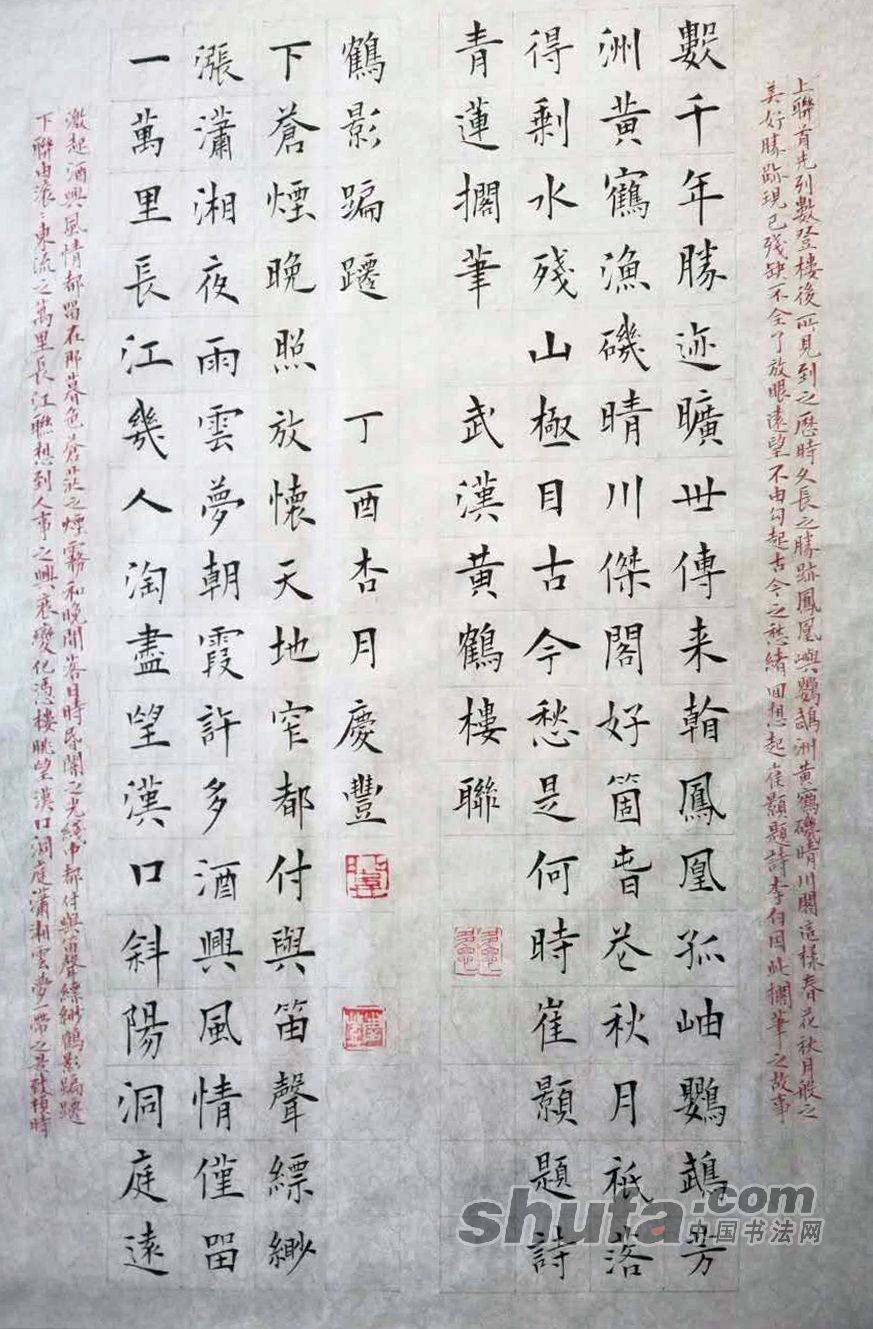 上聯首先列數登樓後所見到之歷時久長之勝跡鳳凰嶼鸚鵡洲黃鶴磯晴川閣這樣春花秋月般之
美好勝跡現已殘缺不全了放眼遠望不由勾起古今之愁緒回想起崔顥題詩李白因此擱筆之故事
數千年勝迹曠世傳来看鳳凰孤岫鸚鵡芳
洲黃鶴漁磯晴川傑閣好箇春花秋月祇落
得剩水殘山極目古今愁是何時崔顥題詩
青蓮擱筆 武漢黃鶴樓聯
一萬里長江幾人淘盡望漢口斜陽洞庭遠
漲瀟湘夜雨雲夢朝霞許多酒興風情僅留
下蒼煙晚照放懷天地窄都付與笛聲縹緲
鶴影蹁躚 丁酉杏月慶豐
下聯由滚〻東流之萬里長江聯想到人事之興衰變化憑樓眺望漢口洞庭瀟湘雲夢一帶之景致頓時
激起酒興風情都留在那暮色蒼茫之煙霧和晚間落日時昏闇之光綫中都付與笛聲縹緲鶴影蹁躚
shufa.com
中国书法网